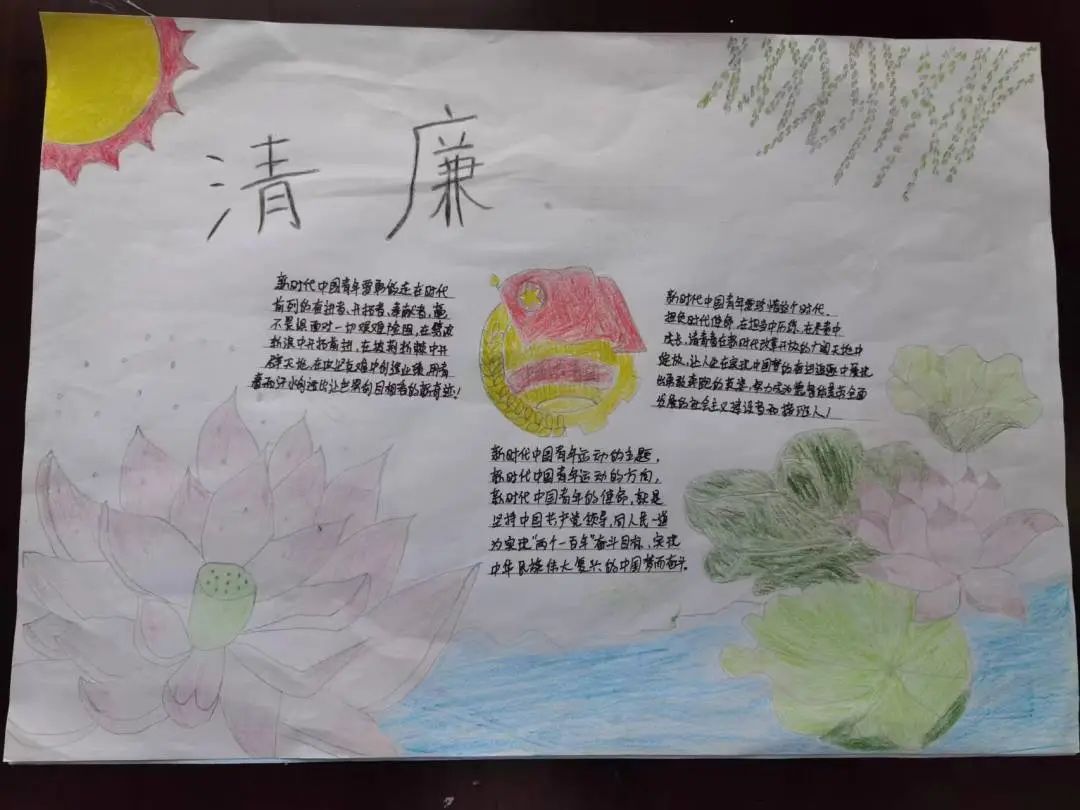 清廉
新时代中国青年要勇做走在时代
前列的奋进者、开拓者、奉献者,毫
不畏惧面对一切艰难险阻,在劈波
斩浪中开拓前进,在披荆斩棘中开
辟天地,在攻坚克难中创造业绩,用青
春和汗水创造出让世界刮目相看的新奇迹!
新时代中国青年要珍惜这个时代、
担负时代使命,在担当中历练,在尽责中
成长,让青春在新时代改革开放的广阔天地中
绽放,让人生在实现中国梦的奋进追逐中展现
出勇敢奔跑的英姿,努力成为德智体美劳全面
发展的社会主义建设者和接班人!
新时代中国青年运动的主题,
新时代中国青年运动的方向,
新时代中国青年的使命,就是
坚持中国共产党领导,同人民一道
为实现"两个一百年"奋斗目标、实现
中华民族伟大复兴的中国梦而奋斗。